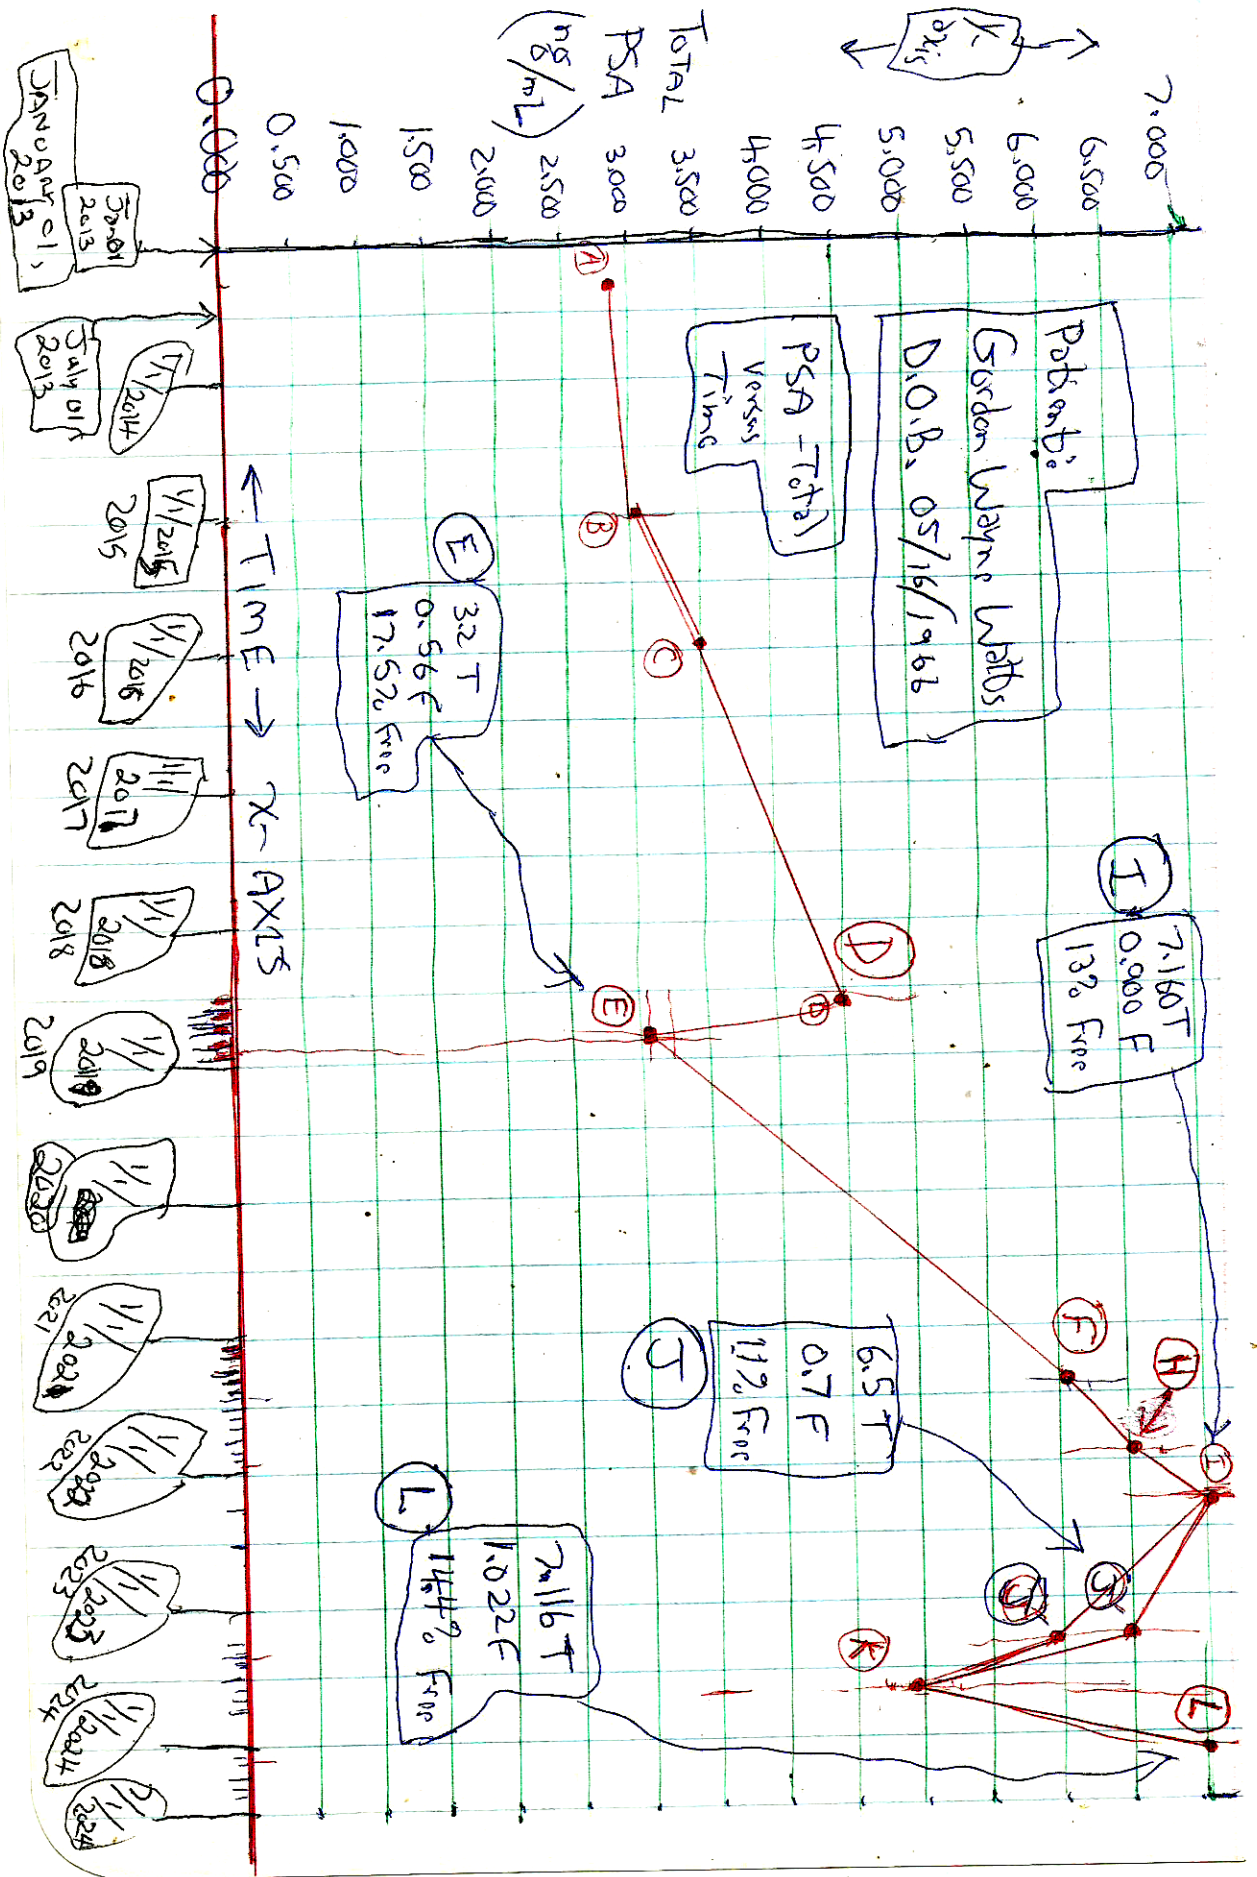 Y-
axis
TOTAL
PSA
(ng/mL)
7.000
6.500
6.000
5.500
5.000
4.500
4.000
3.500
3.000
2.500
2.000
1.500
1.000
0.500
0.000
Patient:
Gordon Wayne Watts
D.O.B. 05/16/1966
PSA - Total
versus
Time
A
B
C
D
D
E
F
H
I
J
J
K
L
I
7.160T
0.000 F
13% Free
E
3.2 T
0.56 F
17.5% Free
J
6.5 T
0.7 F
11% Free
L
7.116 T
1.022 F
14.4% Free
← TIME → X-AXIS
JANUARY 01,
2013
Jan 01
2013
July 01
2013
1/1/2014
1/1/2015
2015
1/1/2016
2016
1/1/2017
2017
1/1/2018
2018
1/1/2019
2019
1/1/
2020
1/1/2021
2021
1/1/2022
2022
1/1/2023
2023
1/1/2024
2024
/1/2024